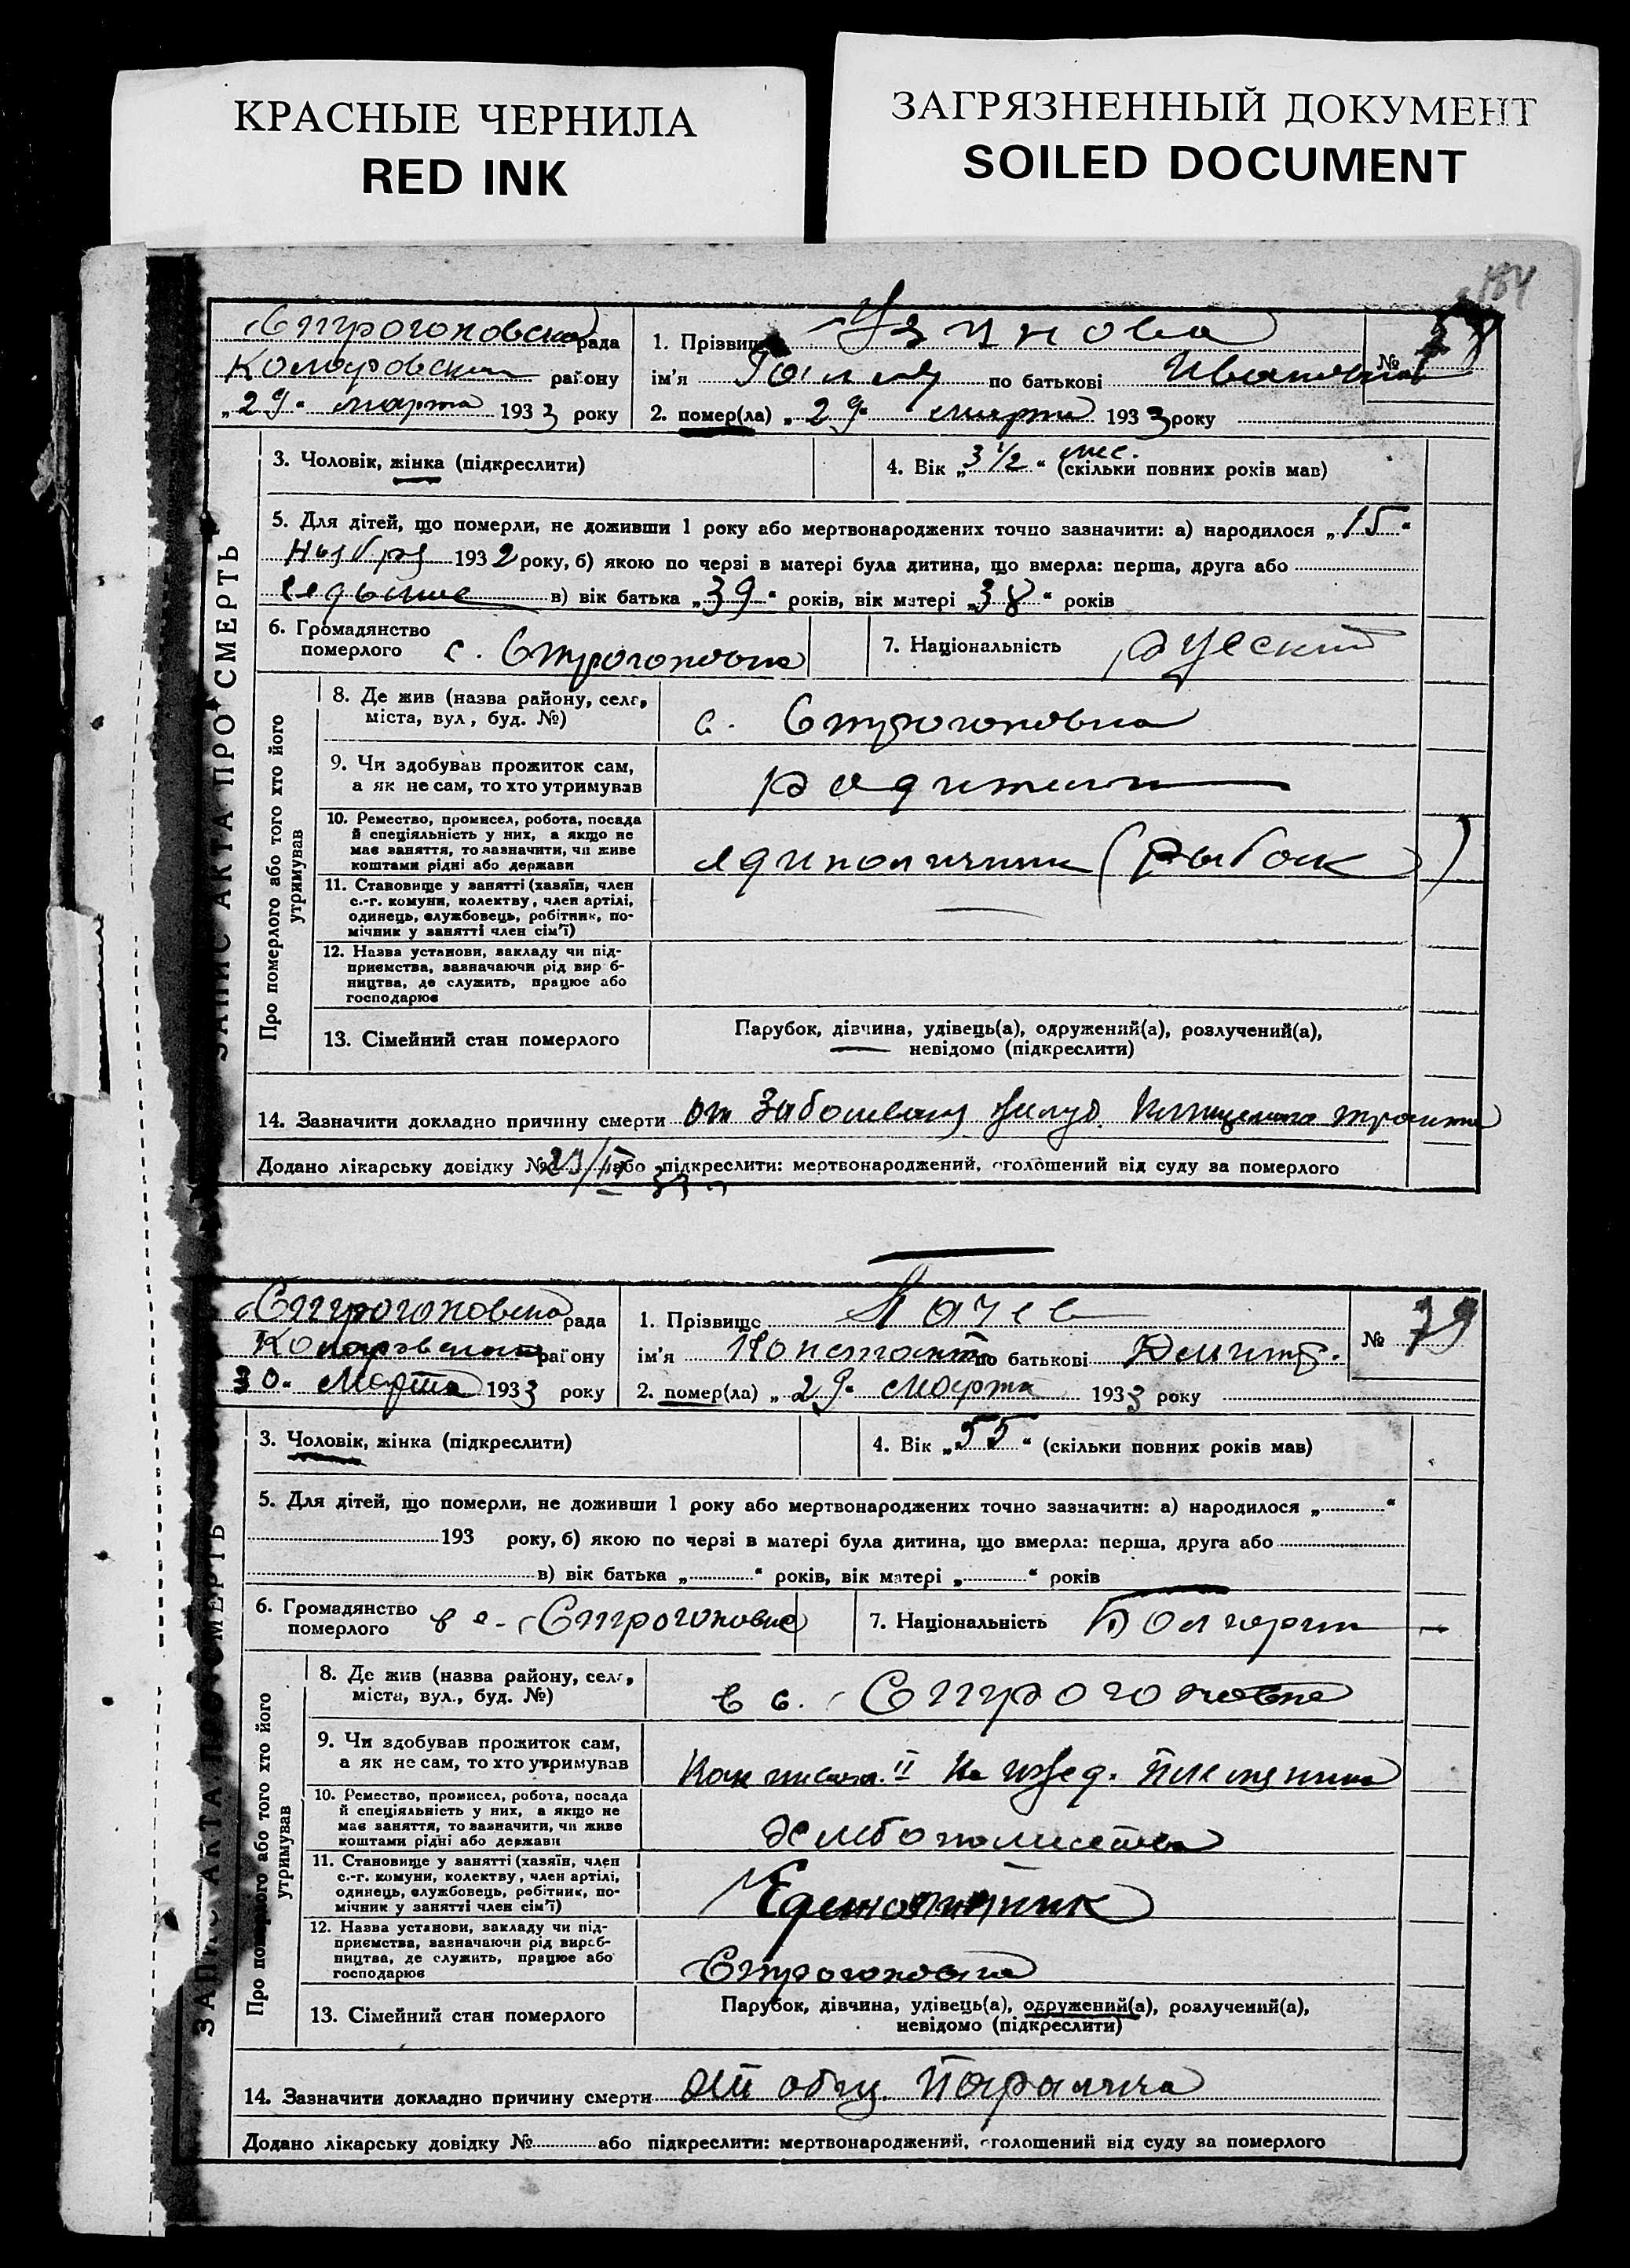 КРАСНЫЕ ЧЕРНИЛА
RED INK
ЗАГРЯЗНЕННЫЙ ДОКУМЕНТ
SOILED DOCUMENT
184
ЗАПИС АКТА ПРО СМЕРТЬ
Строгоновская рада
района Комаровский району
„29“ марта 1933 року
1. Прізвище Узунова
№
ім'я по батькові Ивановна
2. помер(ла) „29“ марта 1933 року
3. Чоловік, жінка (підкреслити)
4. Вік „3 1/2“ мес. (скільки повних років мав)
5. Для дітей, що померли, не доживши 1 року або мертвонароджених точно зазначити: а) народилося „15“
Ноября 1932 року, б) якою по черзі в матері була дитина, що вмерла: перша, друга або
седьмые в) вік батька „39“ років, вік матері „38“ років
6. Громадянство померлого с. Строгоновка
7. Національність русский
Про померлого або того хто його утримував
8. Де жив (назва району, села, міста, вул., буд. №)
с. Строгоновка
9. Чи здобував прожиток сам, а як не сам, то хто утримував
родители
10. Ремество, промисел, робота, посада й спеціяльність у них, а якщо не має заняття, то зазначити, чи живе коштами рідні або держави
единоличник (рыбак)
11. Становище у занятті (хазяїн, член с.-г. комуни, колективу, член артілі, одинець, службовець, робітник, помічник у занятті член сім'ї)
12. Назва установи, закладу чи підприємства, зазначаючи рід виробництва, де служить, працює або господарює
13. Сімейний стан померлого
Парубок, дівчина, удівець(а), одружений(а), розлучений(а),
невідомо (підкреслити)
14. Зазначити докладно причину смерти от Заболевания желуд. кишечного тракта
Додано лікарську довідку № або підкреслити: мертвонароджений, оголошений від суду за померлого
ЗАПИС АКТА ПРО СМЕРТЬ
Строгоновская рада
району
30 Марта 1933 року
1. Прізвище
№ 79
ім'я Константин по батькові Дмитр.
2. помер(ла) „29“ марта 1933 року
3. Чоловік, жінка (підкреслити)
4. Вік „55“ (скільки повних років мав)
5. Для дітей, що померли, не доживши 1 року або мертвонароджених точно зазначити: а) народилося „ “
193 року, б) якою по черзі в матері була дитина, що вмерла: перша, друга або
в) вік батька „ “ років, вік матері „ “ років
6. Громадянство померлого в с. Строгоновке
7. Національність Болгарин
Про померлого або того хто його утримував
8. Де жив (назва району, села, міста, вул., буд. №)
в с. Строгоновке
9. Чи здобував прожиток сам, а як не сам, то хто утримував
На ижед. племянника
10. Ремество, промисел, робота, посада й спеціяльність у них, а якщо не має заняття, то зазначити, чи живе коштами рідні або держави
11. Становище у занятті (хазяїн, член с.-г. комуни, колективу, член артілі, одинець, службовець, робітник, помічник у занятті член сім'ї)
Единоличник
12. Назва установи, закладу чи підприємства, зазначаючи рід виробництва, де служить, працює або господарює
Строгоновка
13. Сімейний стан померлого
Парубок, дівчина, удівець(а), одружений(а), розлучений(а),
невідомо (підкреслити)
14. Зазначити докладно причину смерти от общ. паралича
Додано лікарську довідку № або підкреслити: мертвонароджений, оголошений від суду за померлого